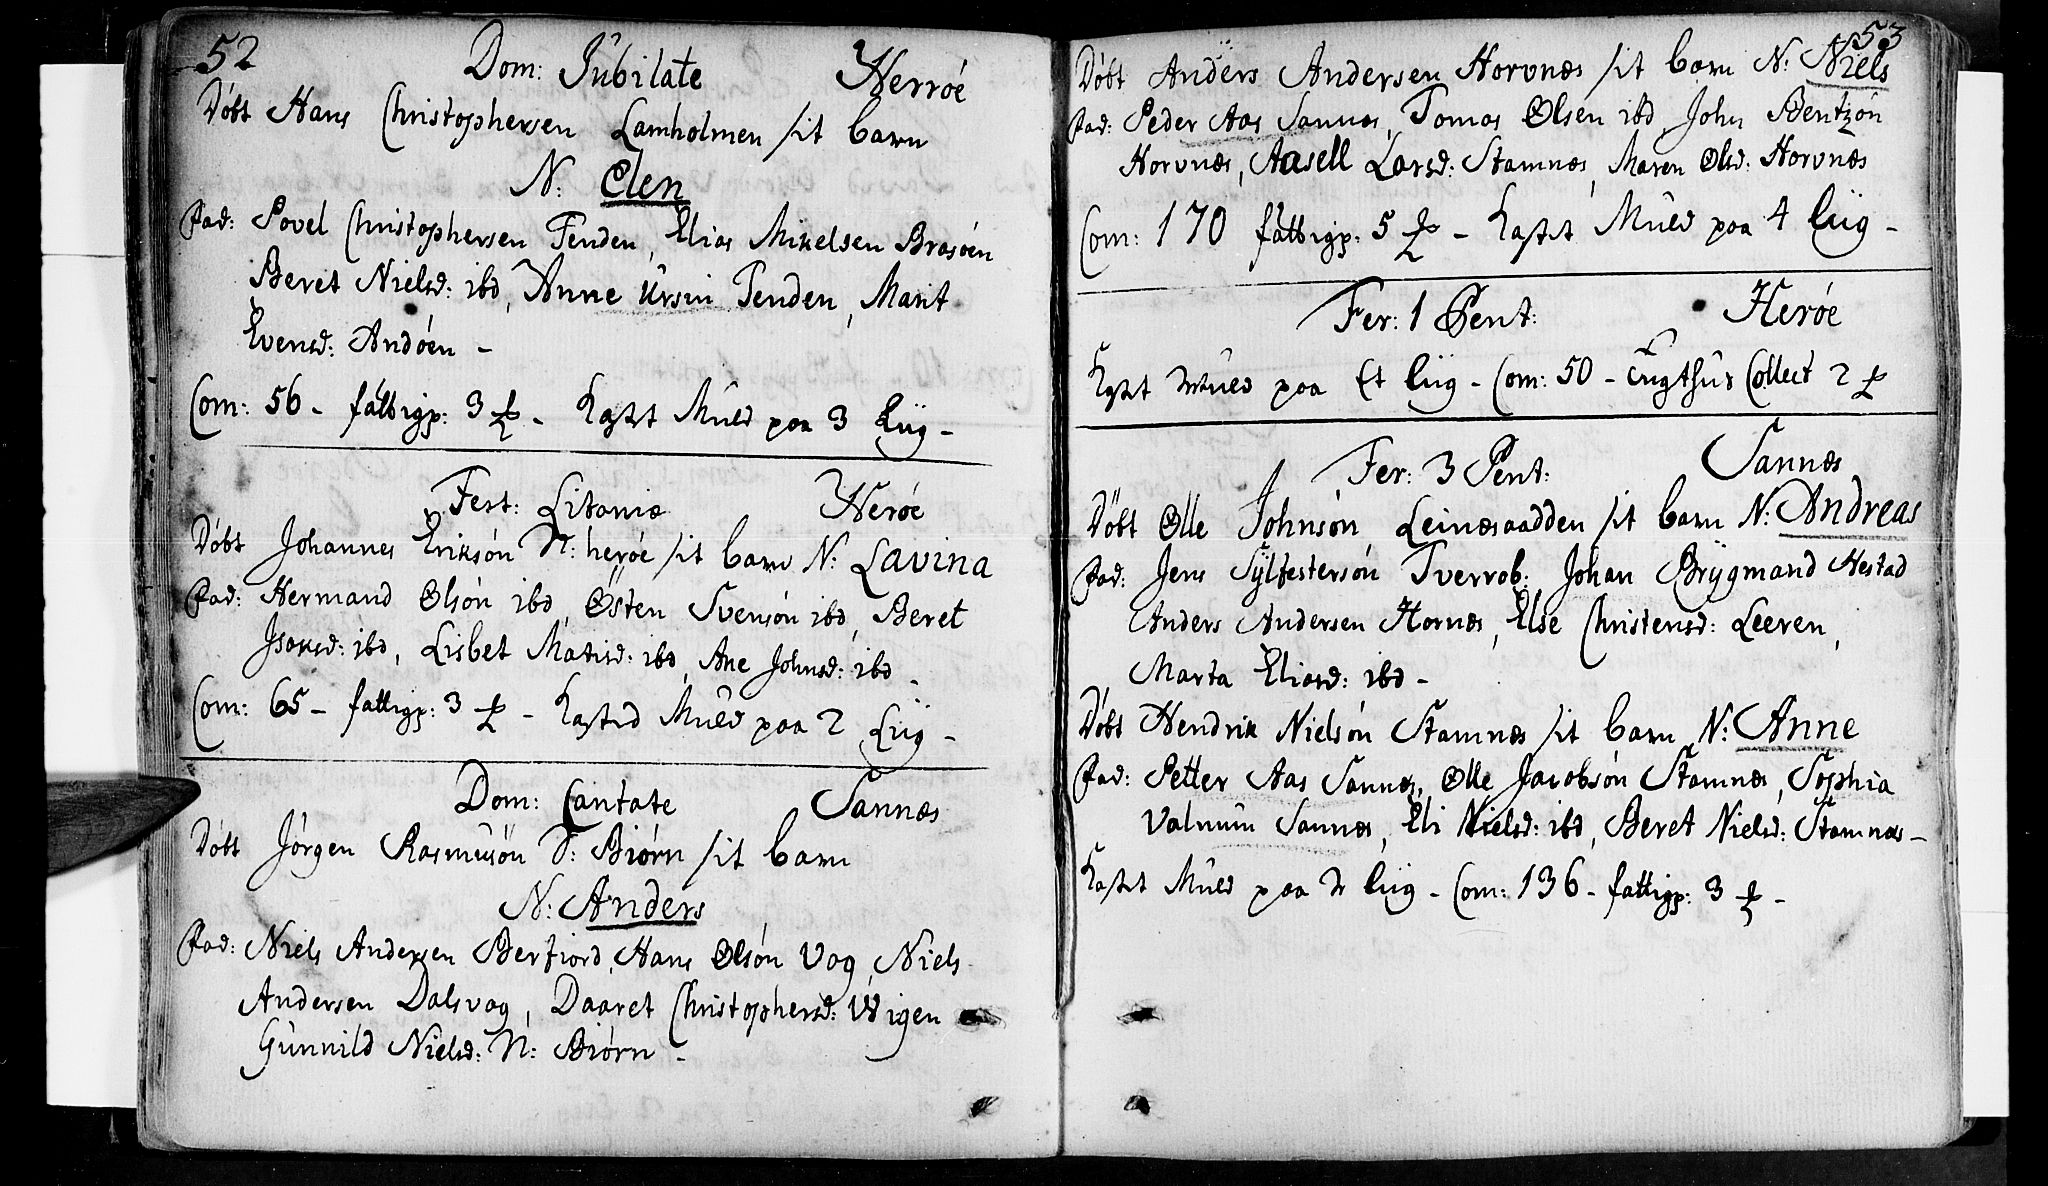 52
Dom: Jubilate Herröe
Döbt Hans Christophersen Lamholmen sit barn
N: Elen
Fad: Povel Christophersen Tenden, Elias Mikelsen Brasöen
Beret Nielsd: ibd, Anne Ursin Tenden, Marit
Evensd: Andöen -
Com: 56 - fattigp: 3 - Kastet Muld paa 3 Liig -
Fest: Litaniæ Heröe
Döbt Johannes Eriksön N: heröe sit barn N: Lavina
Fad: Hermand Olsön ibd, Östen Svensön ibd, Beret
Isaksd: ibd, Lisbet Matisd: ibd, Ane Johnsd: ibd -
Com: 65 - fattigp: 3 - Kasted Muld paa 2 Liig -
Dom: Cantate Sannæs
Döbt Jörgen Rasmusön N: Biörn sit barn
N: Anders
Fad: Niels Andersen Berfiord, Hans Olsön Vog, Niels
Andersen Dalsvog, Daaret Christophersd: Wigen
Gunnild Nielsd: N: Biörn -
53
Döbt Anders Andersen Horvnæs sit barn N: Niels
Fad: Peder Aas Sannæs, Tomas Olsen ibd, John Bentzön
Horvnæs, Aasell Larsd: Stamnæs, Maren Olsd: Horvnæs
Com: 170 fattigp: 5 - Kastet Muld paa 4 Liig -
Fer: 1 Pent: Heröe
Kastet Muld paa Et Liig - Com: 50 - Tugthus Collect 2
Fer: 3 Pent: Sannæs
Döbt Olle Johnsön Leinæsaadden sit barn N: Andreas
Fad: Jens Sylfestersön Tverrob: Johan Brygmand Hestad
Anders Andersen Hornæs, Else Christensd: Leeren,
Marta Eliasd: ibd -
Döbt Hendrik Nielsön Stamnæs sit barn N: Anne
Fad: Petter Aas Sannæs, Olle Jacobsön Stamnæs, Sophia
Valnum Sannæs, Eli Nielsd: ibd, Beret Nielsd: Stamnæs -
Kastet Muld paa 2 Liig - Com: 136 - fattigp: 3 -